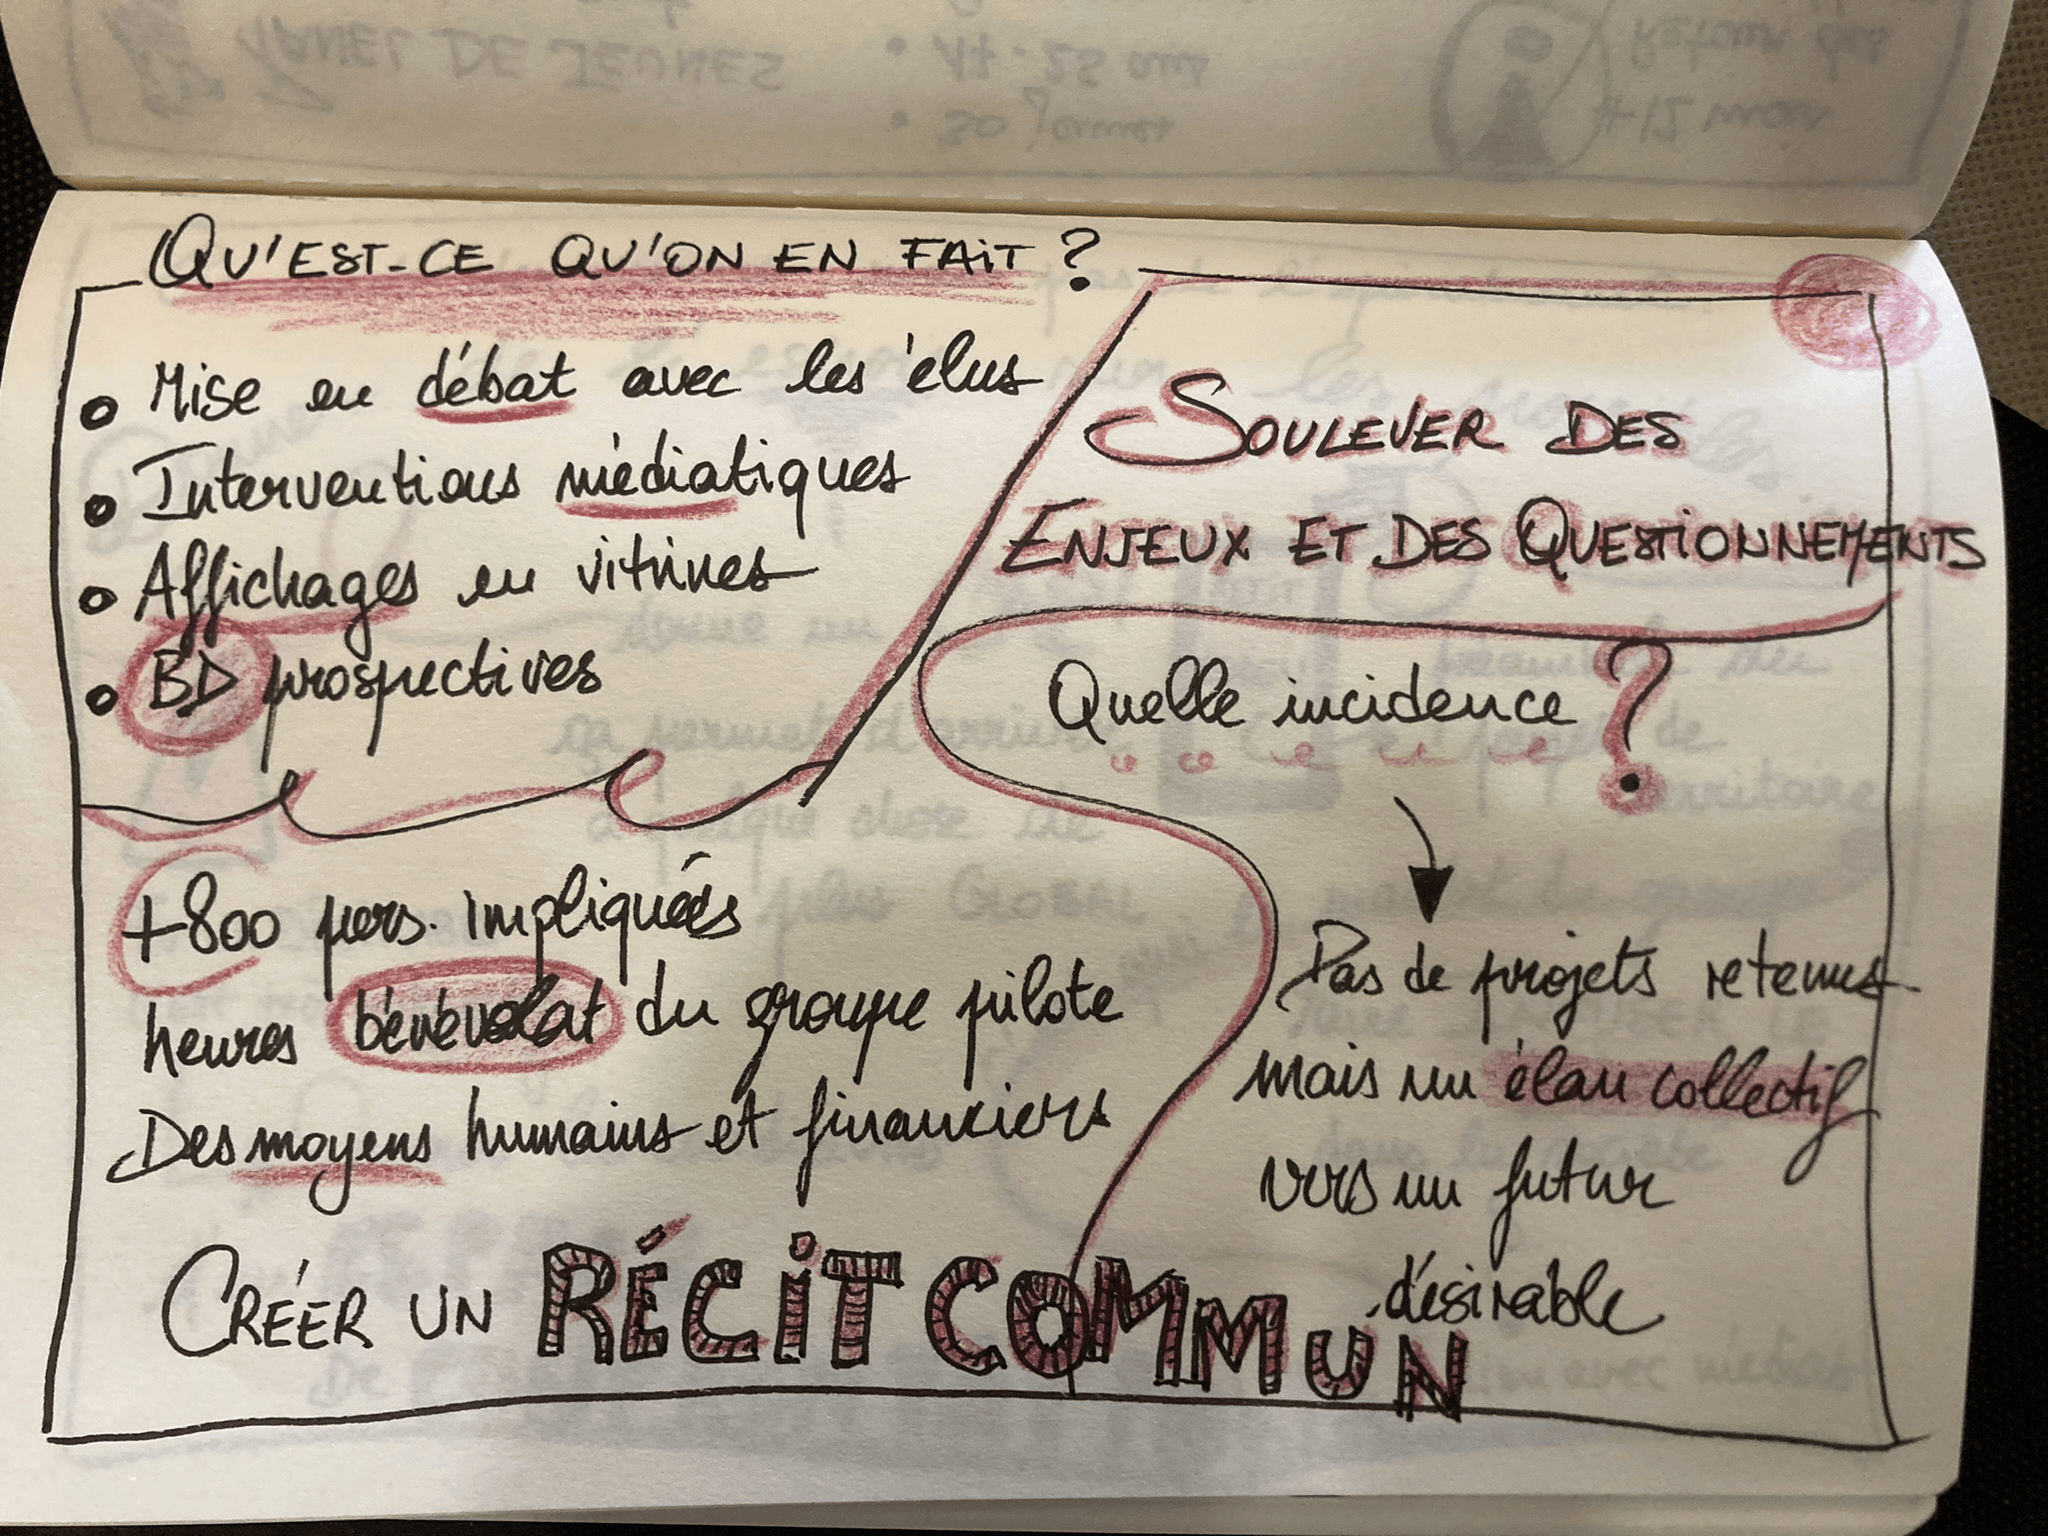 QU'EST-CE QU'ON EN FAIT ?
• Mise en débat avec les élus
• Interventions médiatiques
• Affichages en vitrines
• BD prospectives
SOULEVER DES
ENJEUX ET DES QUESTIONNEMENTS
Quelle incidence ?
Pas de projets retenus
mais un élan collectif
vers un futur
désirable
+800 pers. impliquées
heures bénévolat du groupe pilote
Des moyens humains et financiers
CRÉER UN RÉCIT COMMUN
PANEL DE JEUNES
• 17-25 ans
• 30 Jeunes